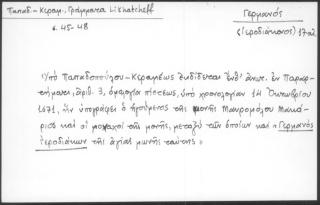 Παπαδ.-Κεραμ., Γράμματα Likhatcheff
Γερμανός
σ. 45-48
(ἱεροδιάκονος) 17 αἰ.
Ὑπὸ Παπαδοπούλου-Κεραμέως ἐκδίδεται ἐνθ' ἀνωτ. ἐν Παραρ-
τήματι, ἀριθ. 3, ὁμολογία πίστεως, ὑπὸ χρονολογίαν 14 Ὀκτωβρίου
1671, ἣν ὑπογράφει ὁ ἡγούμενος τῆς μονῆς Μαυρομόλου Μακά-
ριος καὶ οἱ μοναχοὶ τῆς μονῆς, μεταξὺ τῶν ὁποίων καὶ «Γερμανὸς
ἱεροδιάκων τῆς ἁγίας μωνῆς ταύτης»